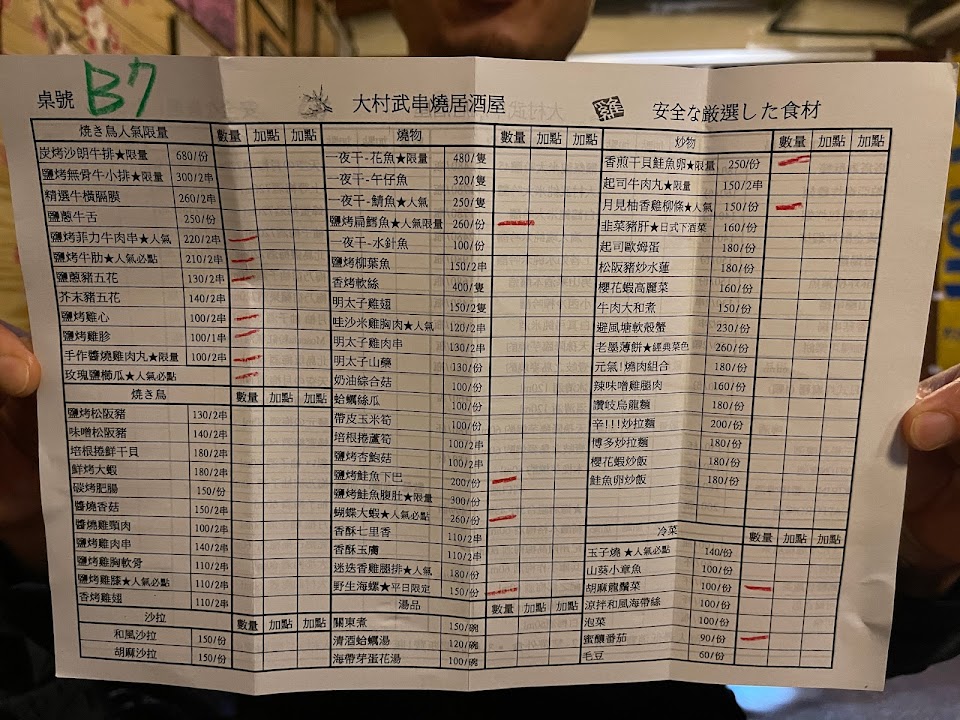 桌號 B7 大村武串燒居酒屋 安全な厳選した食材
焼き鳥人氣限量 數量 加點 加點
炭烤沙朗牛排★限量 680/份
鹽烤無骨牛小排★限量 300/2串
精選牛橫隔膜 260/2串
鹽蔥牛舌 250/份
鹽烤菲力牛肉串★人氣 220/2串
鹽烤牛肋★人氣必點 210/2串
鹽蔥豬五花 130/2串
芥末豬五花 140/2串
鹽烤雞心 100/2串
鹽烤雞胗 100/1串
手作醬燒雞肉丸★限量 100/2串
玫瑰鹽櫛瓜★人氣必點
焼き鳥 數量 加點 加點
鹽烤松阪豬 130/2串
味噌松阪豬 140/2串
培根捲鮮干貝 180/2串
鮮烤大蝦 180/2串
碳烤肥腸 150/份
醬燒香菇 150/2串
醬燒雞頸肉 100/2串
鹽烤雞肉串 140/2串
鹽烤雞胸軟骨 110/2串
鹽烤雞膝★人氣必點 110/2串
香烤雞翅 110/2串
沙拉 數量 加點 加點
和風沙拉 150/份
胡麻沙拉 150/份
燒物 數量 加點 加點
一夜干-花魚★限量 480/隻
一夜干-午仔魚 320/隻
一夜干-鯖魚★人氣 250/隻
鹽烤扁鱈魚★人氣限量 260/份
一夜干-水針魚 100/份
鹽烤柳葉魚 150/2串
香烤軟絲 400/隻
明太子雞翅 150/2隻
哇沙米雞胸肉★人氣 120/2串
明太子雞肉串 130/2串
明太子山藥 130/份
奶油綜合菇 100/份
蛤蠣絲瓜 100/份
帶皮玉米筍 100/份
培根捲蘆筍 100/2串
鹽烤杏鮑菇 100/2串
鹽烤鮭魚下巴 200/份
鹽烤鮭魚腹肚★限量 300/份
蝴蝶大蝦★人氣必點 260/份
香酥七里香 110/2串
香酥玉膚 110/2串
迷迭香雞腿排★人氣 180/份
野生海螺★平日限定 150/份
湯品 數量 加點 加點
關東煮 150/碗
清酒蛤蠣湯 120/碗
海帶芽蛋花湯 100/碗
炒物 數量 加點 加點
香煎干貝鮭魚卵★限量 250/份
起司牛肉丸★限量 150/2串
月見柚香雞柳條★人氣 150/份
韭菜豬肝★日式下酒菜 160/份
起司歐姆蛋 180/份
松阪豬炒水蓮 180/份
櫻花蝦高麗菜 160/份
牛肉大和煮 150/份
避風塘軟殼蟹 230/份
老墨薄餅★經典菜色 260/份
元氣!燒肉組合 180/份
辣味噌雞腿肉 160/份
讚岐烏龍麵 180/份
辛!!!炒拉麵 200/份
博多炒拉麵 180/份
櫻花蝦炒飯 180/份
鮭魚卵炒飯 180/份
冷菜 數量 加點 加點
玉子燒★人氣必點 140/份
山葵小章魚 100/份
胡麻龍鬚菜 100/份
涼拌和風海帶絲 100/份
泡菜 100/份
蜜釀番茄 90/份
毛豆 60/份